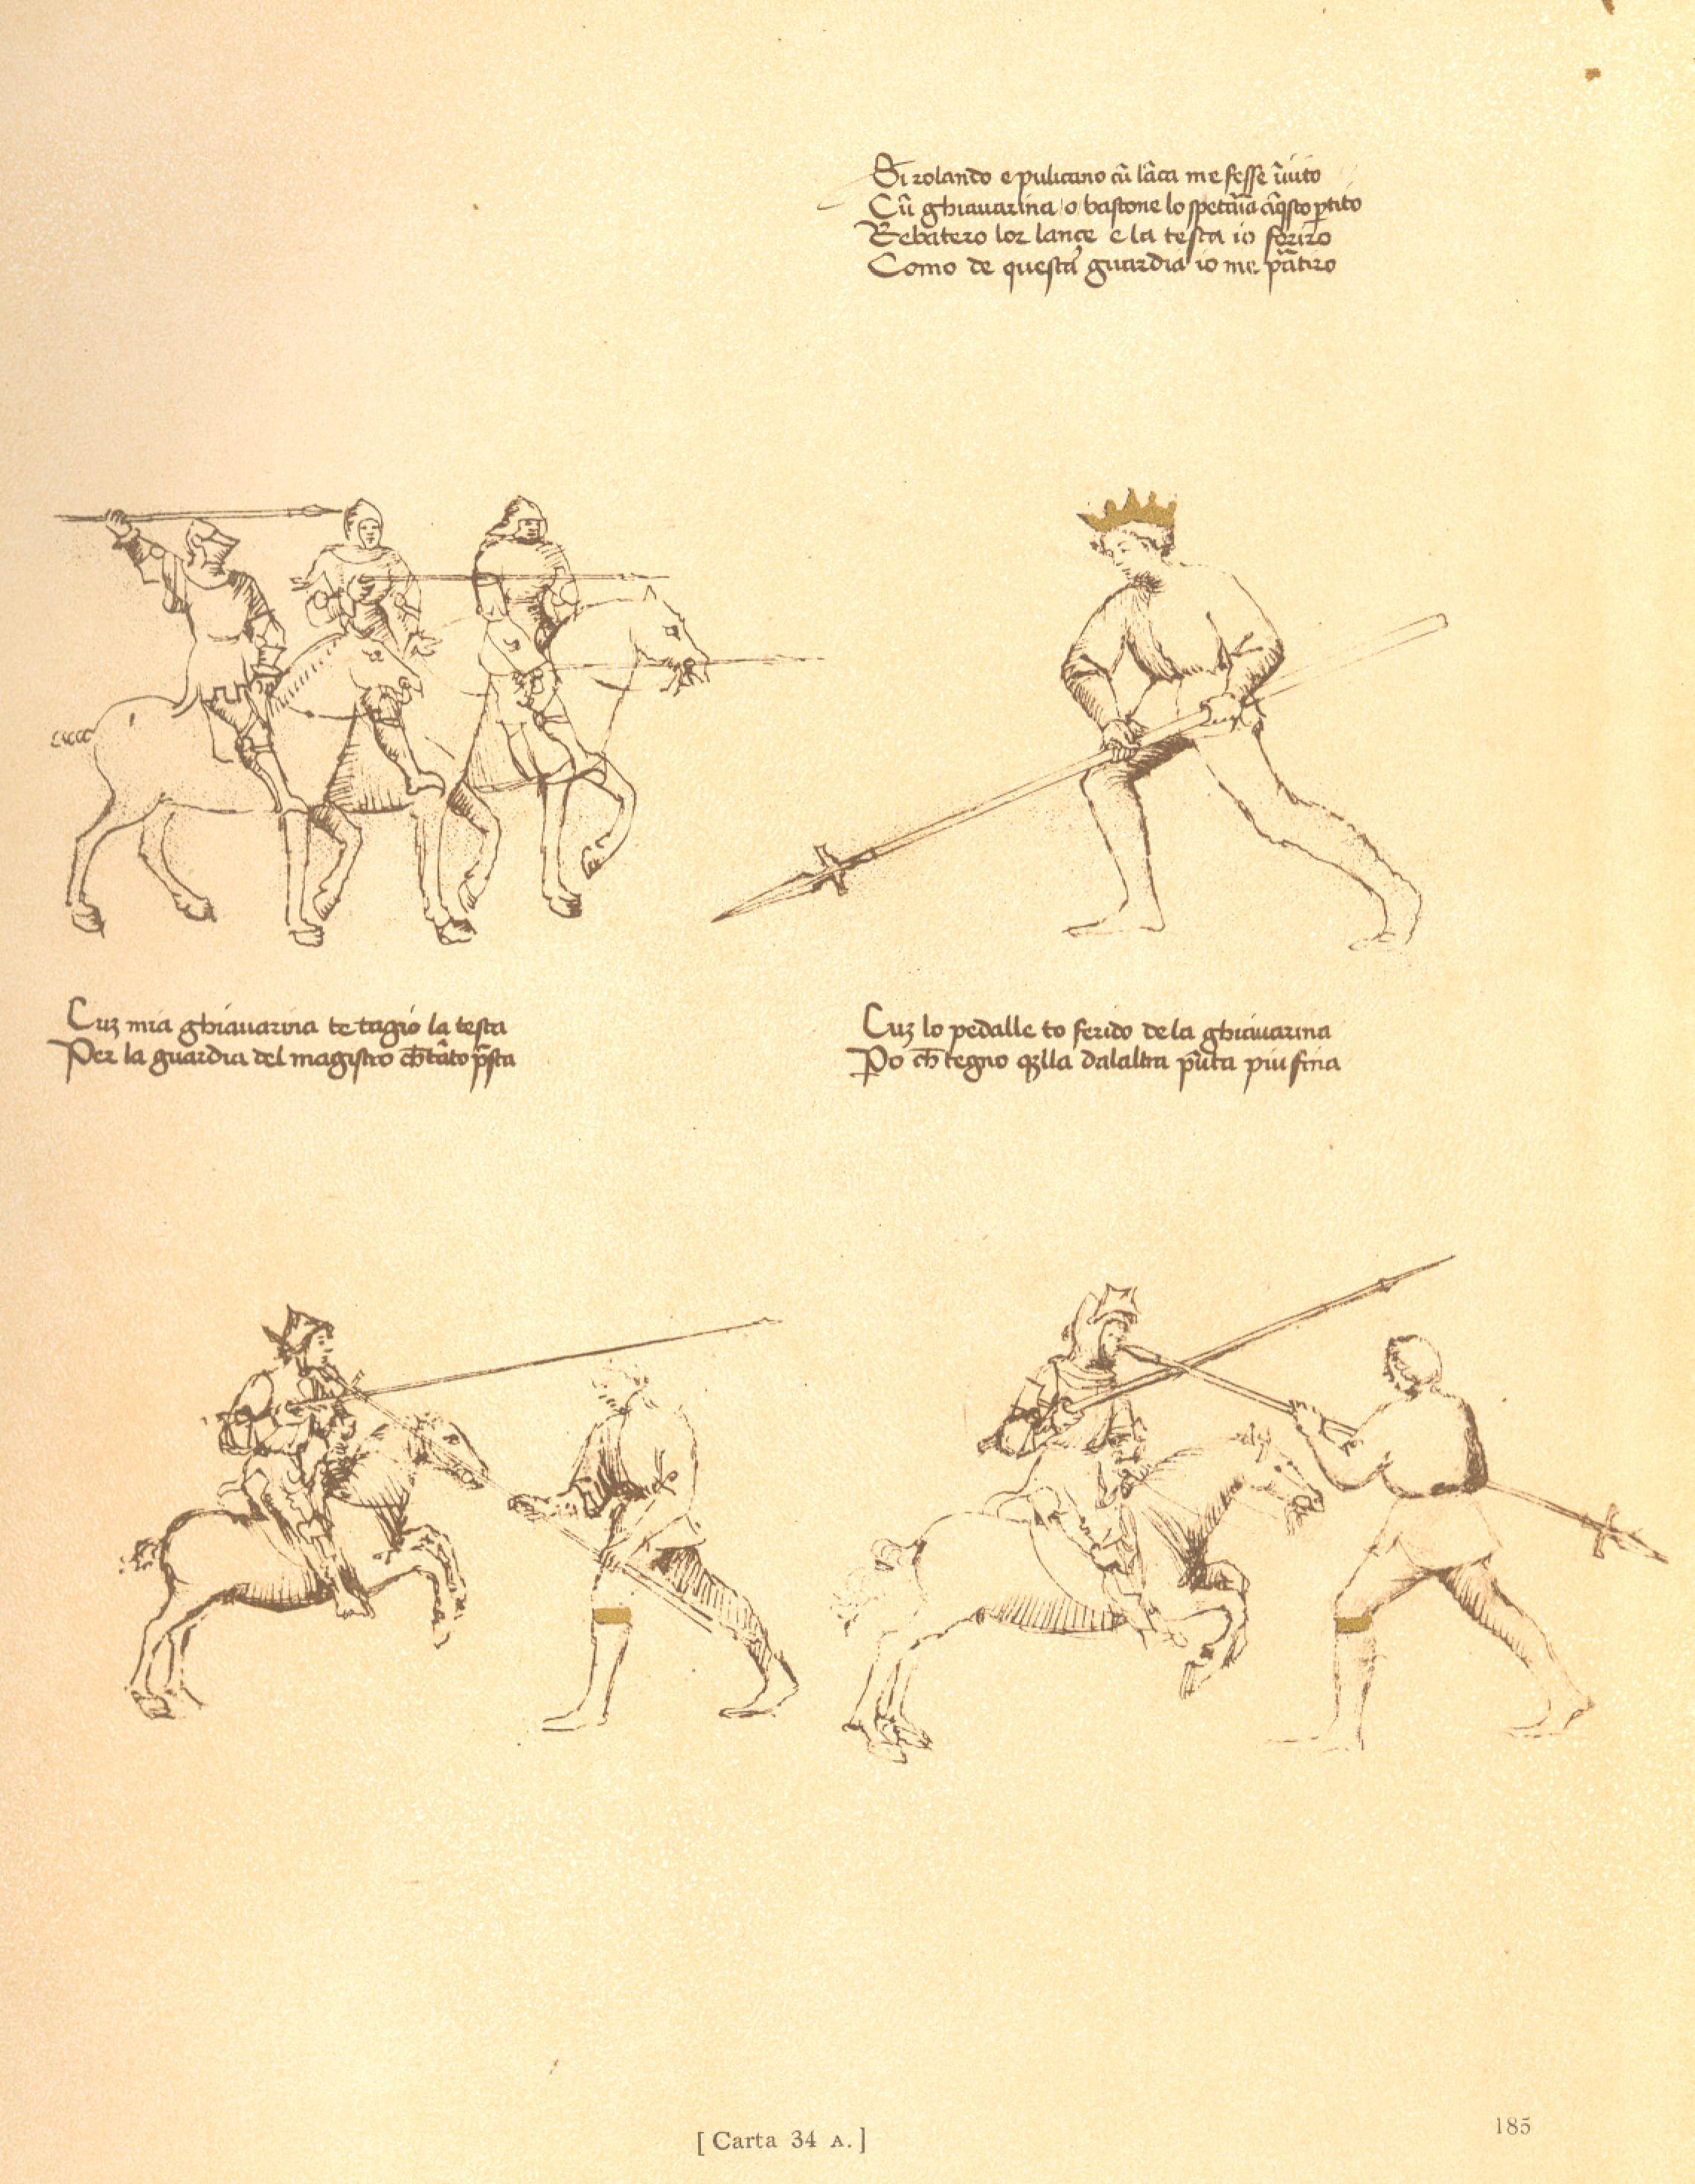 Si rolando e pulicano cũ lãca me fesse ĩuito
Cũ ghiauarina o bastone lo spetaria cũ q̃sto ꝑtito
Rebatero lor lançe e la testa io feriro
Como de questa guardia io me ꝑatiro
Cuʒ mia ghiauarina te tagio la testa
Per la guardia del magistro ch̃ tãto p̃sta
Cuʒ lo pedalle to ferido de la ghiauarina
Po ch̃ tegno qʒlla dalaltra pũta piu fina
[ Carta 34 A. ]
185